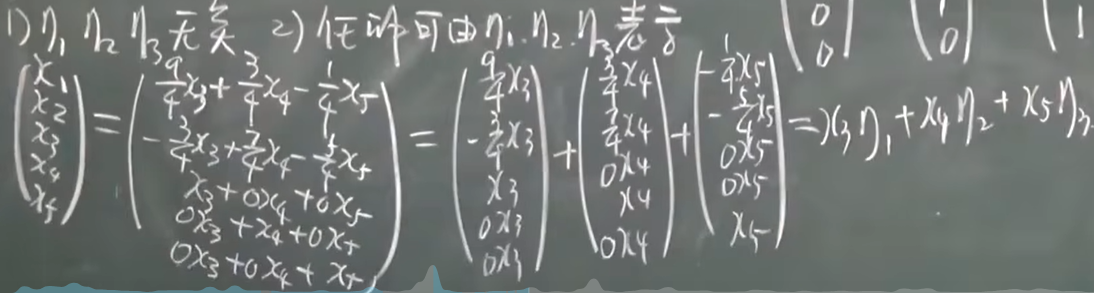 1) η₁ η₂ η₃ 无关 2) 任一解可由η₁.η₂.η₃表示
(0 0) (1 0) (1)
(x₁ x₂ x₃ x₄ x₅) = (9/4x₃+3/4x₄-1/4x₅ -3/4x₃+7/4x₄-5/4x₅ x₃+0x₄+0x₅ 0x₃+x₄+0x₅ 0x₃+0x₄+x₅) = (9/4x₃ -3/4x₃ x₃ 0x₃ 0x₃) + (3/4x₄ 7/4x₄ 0x₄ x₄ 0x₄) + (-1/4x₅ -5/4x₅ 0x₅ 0x₅ x₅) = x₃η₁+x₄η₂+x₅η₃